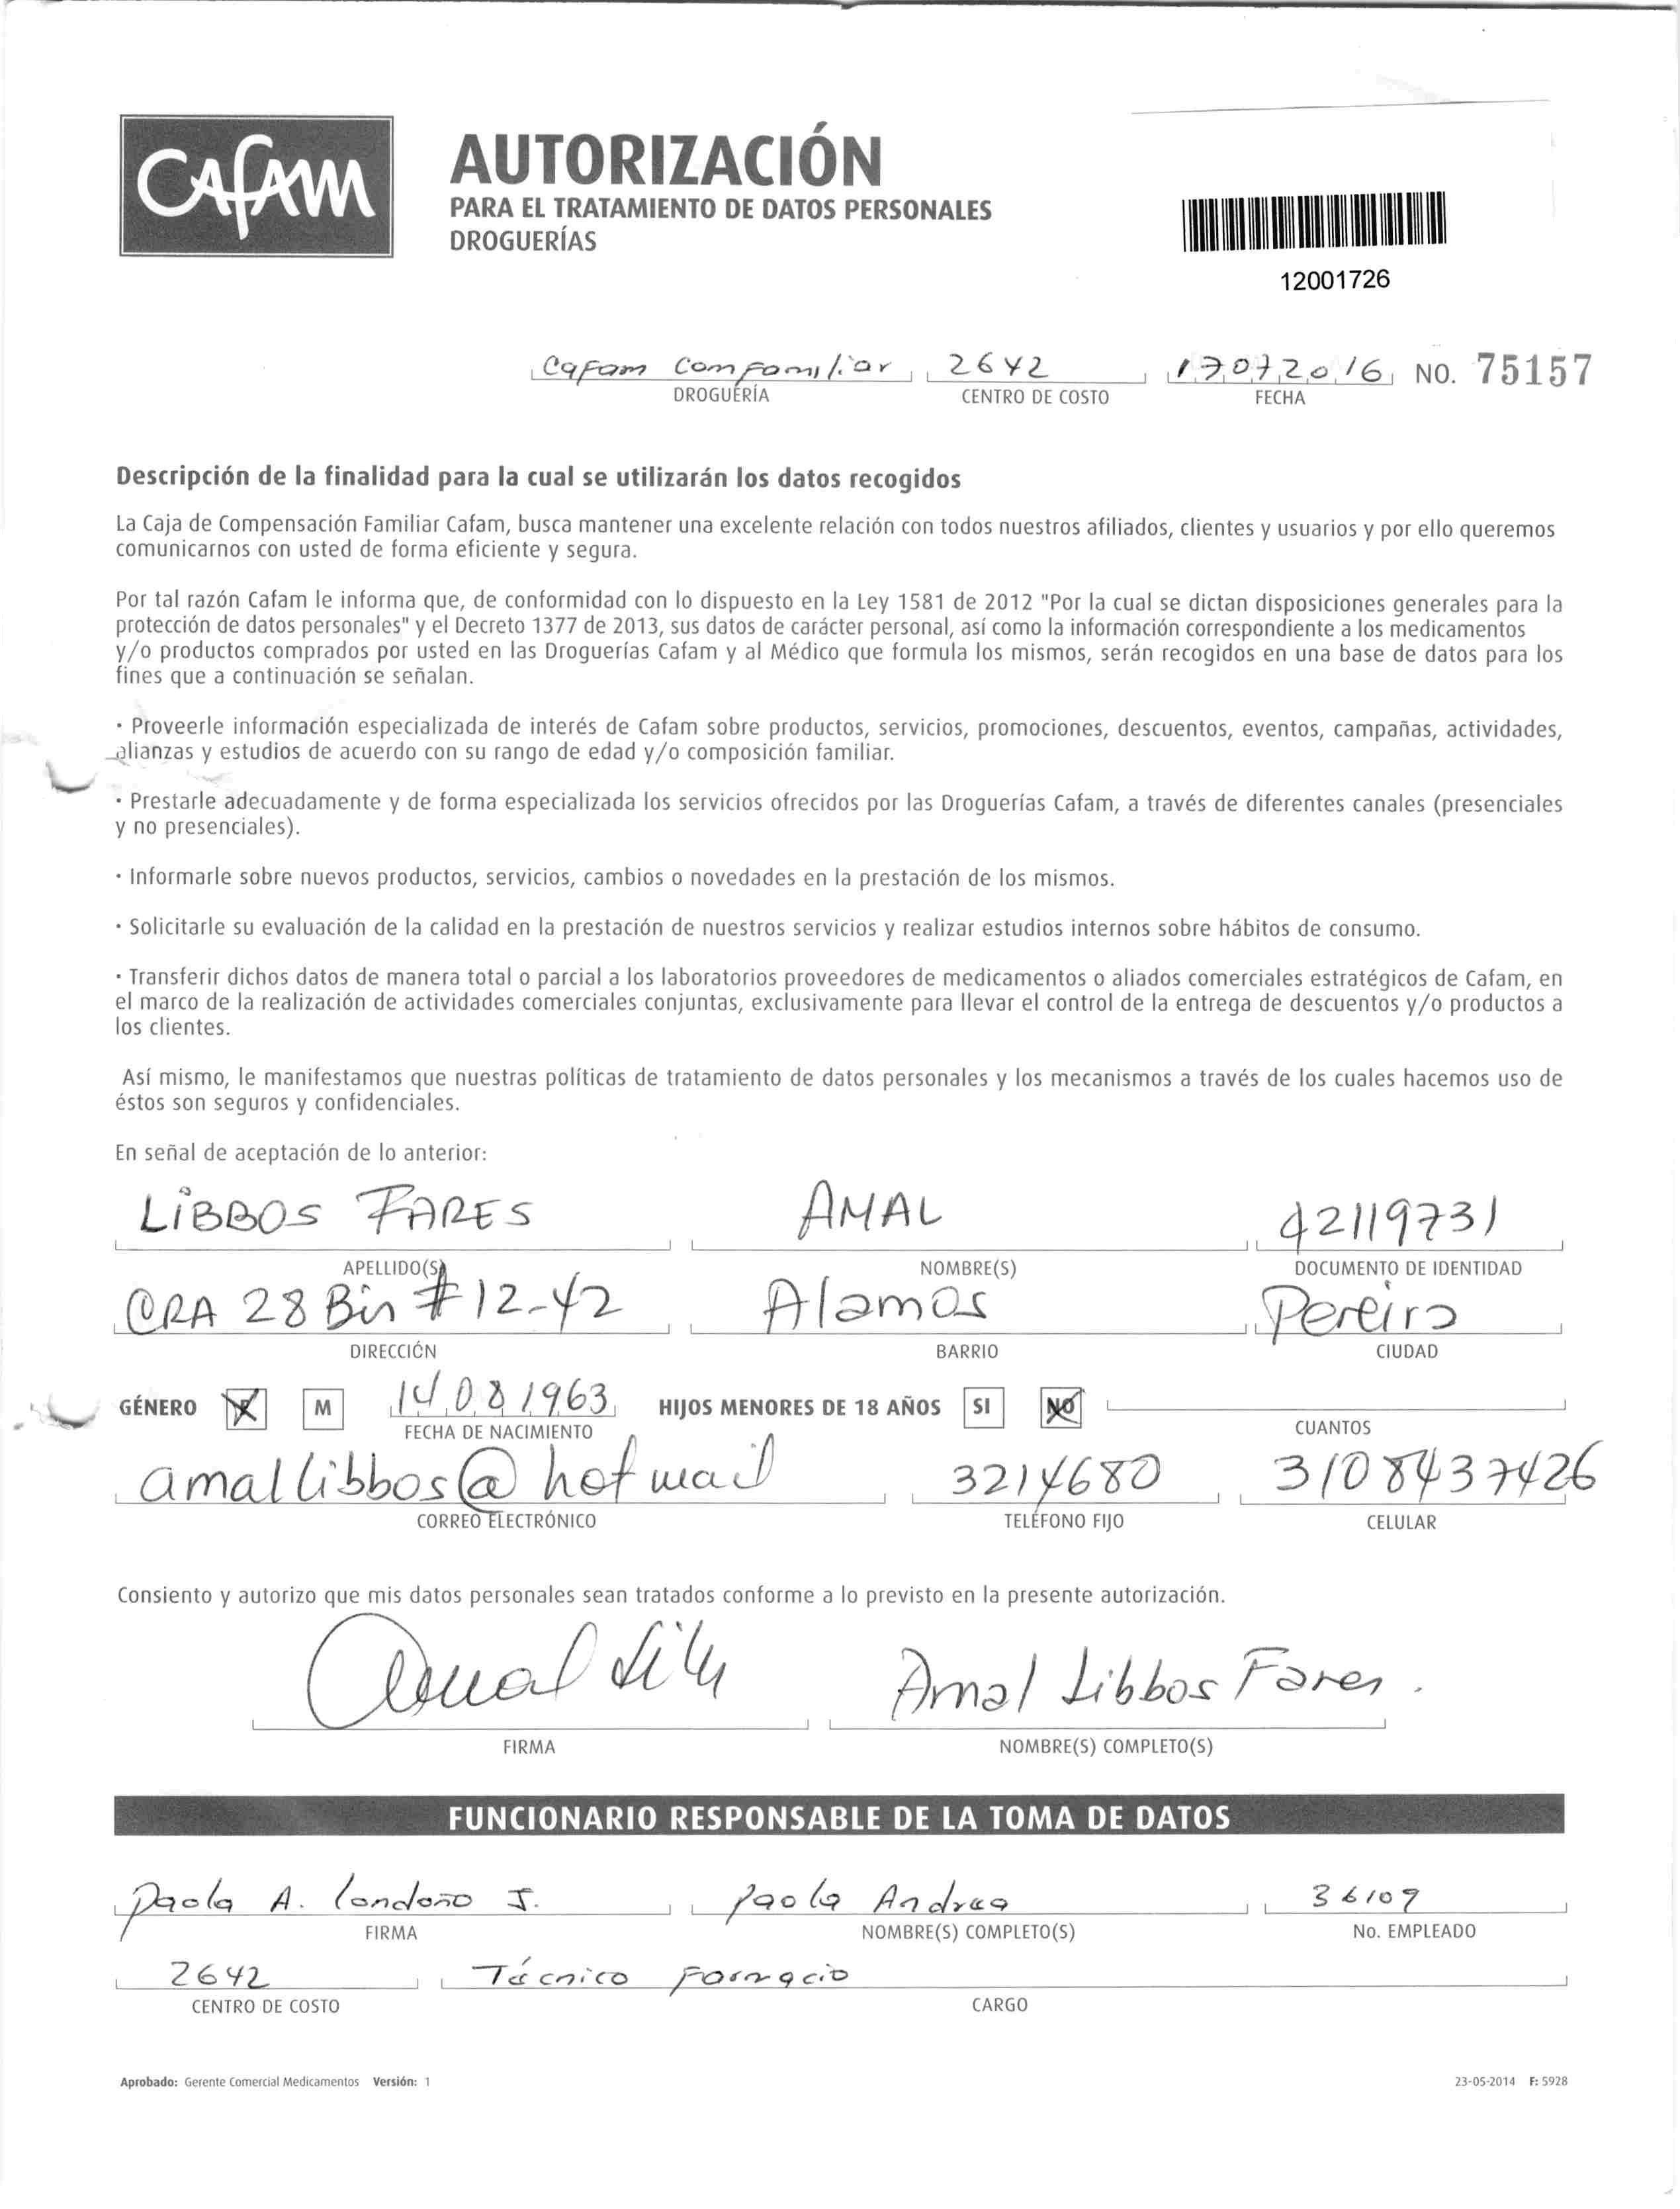 CAFAM
AUTORIZACIÓN
PARA EL TRATAMIENTO DE DATOS PERSONALES
DROGUERÍAS
12001726
Cafam Comfamiliar 2642 17072016 NO. 75157
DROGUERÍA CENTRO DE COSTO FECHA
Descripción de la finalidad para la cual se utilizarán los datos recogidos
La Caja de Compensación Familiar Cafam, busca mantener una excelente relación con todos nuestros afiliados, clientes y usuarios y por ello queremos
comunicarnos con usted de forma eficiente y segura.
Por tal razón Cafam le informa que, de conformidad con lo dispuesto en la Ley 1581 de 2012 "Por la cual se dictan disposiciones generales para la
protección de datos personales" y el Decreto 1377 de 2013, sus datos de carácter personal, así como la información correspondiente a los medicamentos
y/o productos comprados por usted en las Droguerías Cafam y al Médico que formula los mismos, serán recogidos en una base de datos para los
fines que a continuación se señalan.
· Proveerle información especializada de interés de Cafam sobre productos, servicios, promociones, descuentos, eventos, campañas, actividades,
alianzas y estudios de acuerdo con su rango de edad y/o composición familiar.
· Prestarle adecuadamente y de forma especializada los servicios ofrecidos por las Droguerías Cafam, a través de diferentes canales (presenciales
y no presenciales).
· Informarle sobre nuevos productos, servicios, cambios o novedades en la prestación de los mismos.
· Solicitarle su evaluación de la calidad en la prestación de nuestros servicios y realizar estudios internos sobre hábitos de consumo.
· Transferir dichos datos de manera total o parcial a los laboratorios proveedores de medicamentos o aliados comerciales estratégicos de Cafam, en
el marco de la realización de actividades comerciales conjuntas, exclusivamente para llevar el control de la entrega de descuentos y/o productos a
los clientes.
Así mismo, le manifestamos que nuestras políticas de tratamiento de datos personales y los mecanismos a través de los cuales hacemos uso de
éstos son seguros y confidenciales.
En señal de aceptación de lo anterior:
LIBBOS FARES AMAL 42119731
APELLIDO(S) NOMBRE(S) DOCUMENTO DE IDENTIDAD
CRA 28 Bis # 12-42 Alamos Pereira
DIRECCIÓN BARRIO CIUDAD
GÉNERO F M 14081963 HIJOS MENORES DE 18 AÑOS SI NO
FECHA DE NACIMIENTO CUANTOS
amallibbos@hotmail 3214680 3108437426
CORREO ELECTRÓNICO TELÉFONO FIJO CELULAR
Consiento y autorizo que mis datos personales sean tratados conforme a lo previsto en la presente autorización.
Amal Libbos Fares.
FIRMA NOMBRE(S) COMPLETO(S)
FUNCIONARIO RESPONSABLE DE LA TOMA DE DATOS
Paola A. Londoño J. Paola Andrea 36109
FIRMA NOMBRE(S) COMPLETO(S) No. EMPLEADO
2642 Técnico Farmacia
CENTRO DE COSTO CARGO
Aprobado: Gerente Comercial Medicamentos Versión: 1 23-05-2014 F: 5928